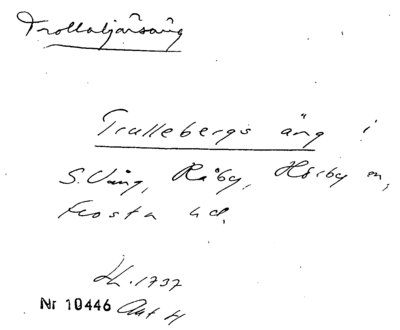 Trollatjärsäng
Trullebergs äng i
S. Vång, Råby, Hörby sn,
Frosta hd.
LL. 1737
Nr 10446 Akt 4